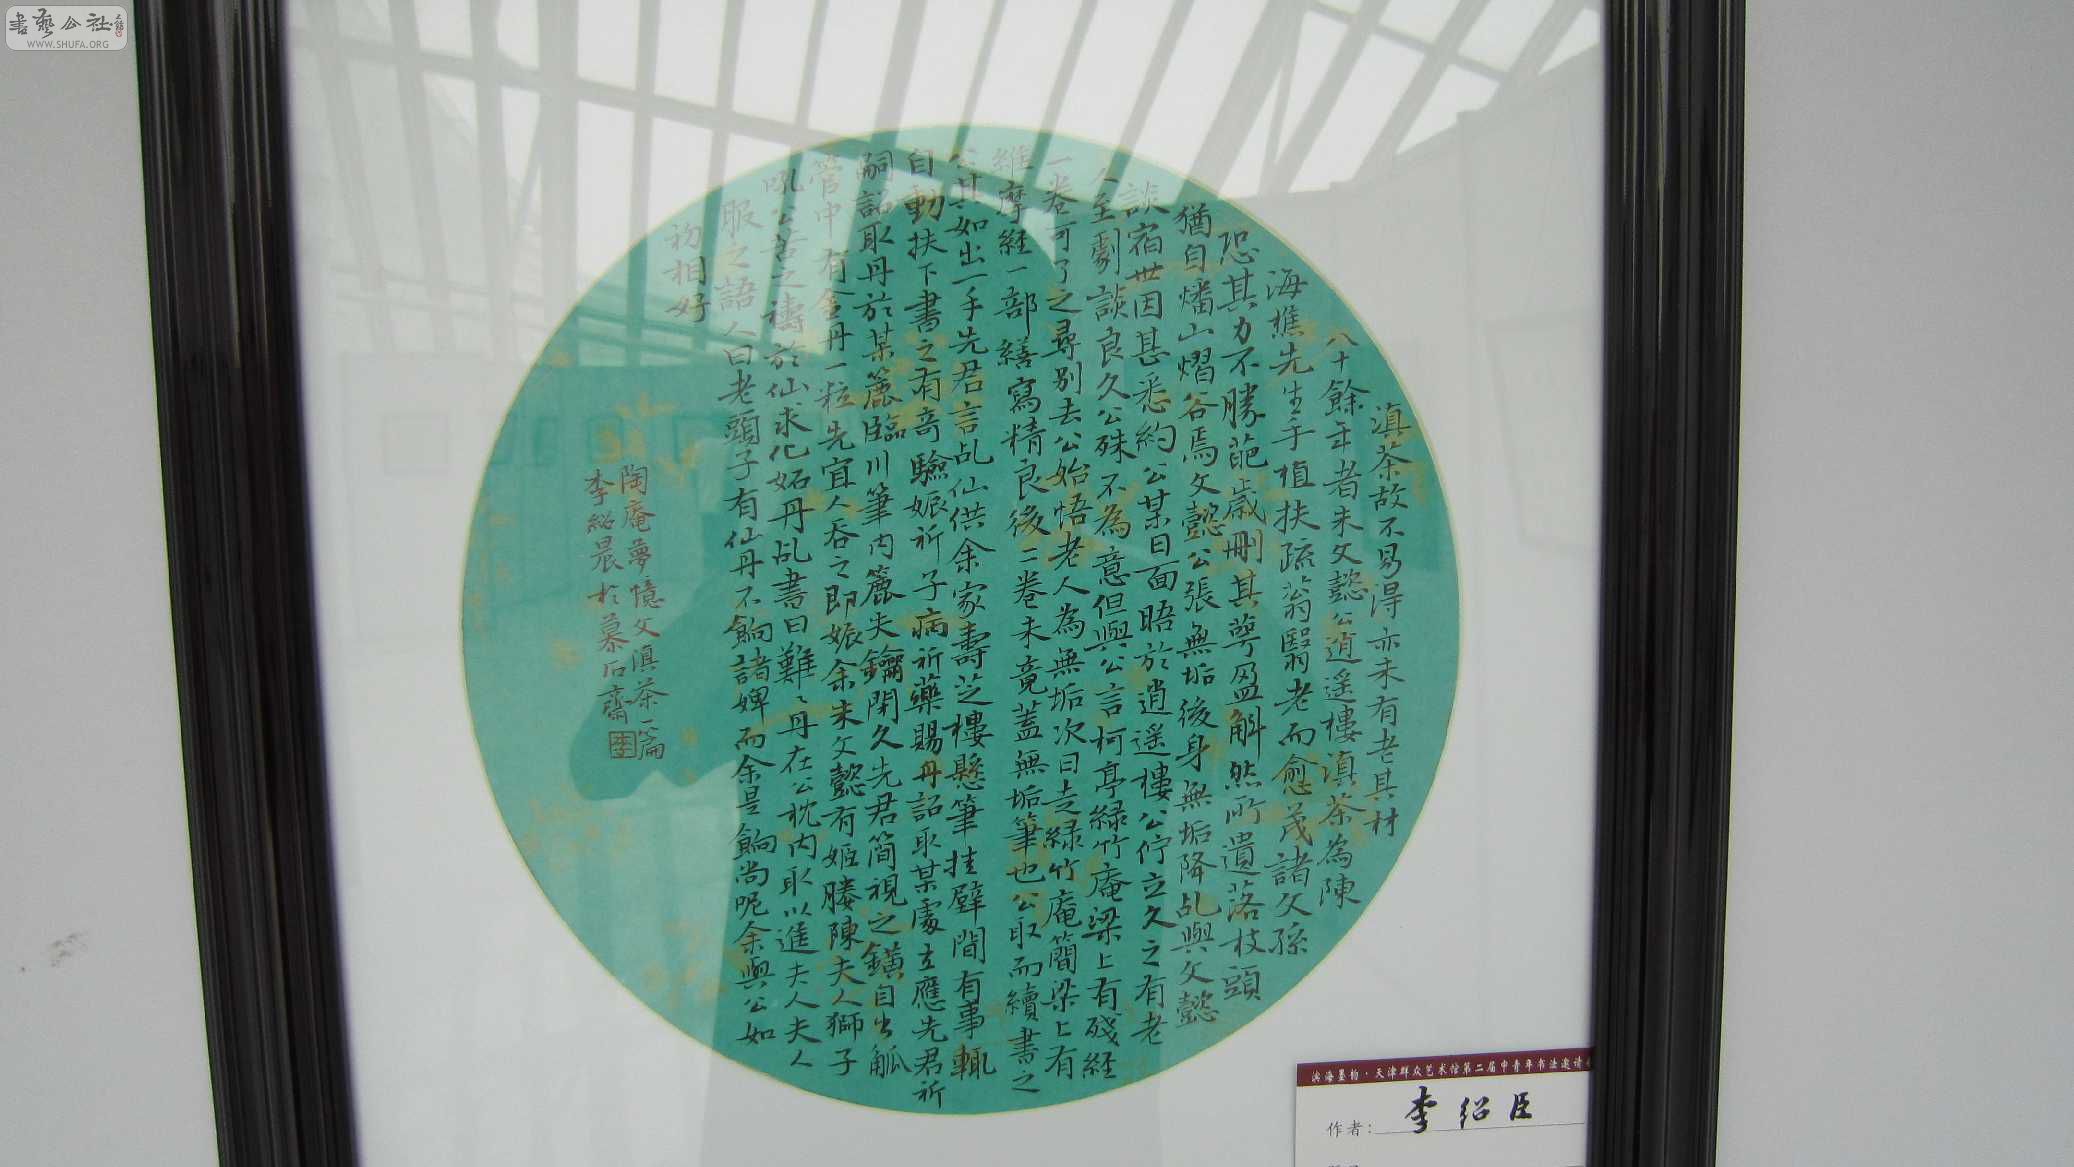 書藝公社
WWW.SHUFA.ORG
滇茶故不易得亦未有老其材
八十餘年者朱文懿公逍遥樓滇茶為陳
海樵先生手植扶疏蓊翳老而愈茂諸文孫
恐其力不勝葩歲刪其萼盈斛然所遺落枝頭
猶自燔山熠谷焉文懿公張無垢後身無垢降乩與文懿
談宿世因甚悉約公某日面晤於逍遥樓公佇立久之有老
人至劇談良久公殊不為意但與公言柯亭緑竹庵梁上有殘經
一卷可了之尋別去公始悟老人為無垢次日走緑竹庵簡梁上有
維摩經一部繕寫精良後二卷未竟蓋無垢筆也公取而續書之
公其如出一手先君言乩仙供余家壽芝樓懸筆挂壁間有事輒
自動扶下書之有奇驗娠祈子病祈藥賜丹詔取某處立應先君祈
嗣詔取丹於某簏臨川筆内簏失鑰閉久先君簡視之鐄自出觚
管中有金丹一粒先宜人吞之即娠余朱文懿有姬媵陳夫人獅子
吼公苦之禱於仙求化妬丹乩書曰難々丹在公枕内取以進夫人夫人
服之語人曰老頭子有仙丹不餉諸婢而余是餉尚呢余與公如
初相好
陶庵夢憶文滇茶一篇
李紹晨於慕石齋
李
滨海墨韵·天津群众艺术馆第二届中青年书法邀请
作者:李绍臣